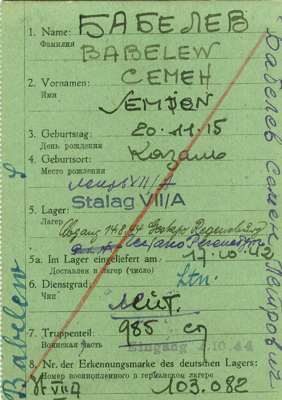 1. Name: БАБЕЛЕВ
Фамилия
BABELEW
2. Vornamen: СЕМЕН
Имя
SEMJON
3. Geburtstag: 20.11.15
День рождения
4. Geburtsort:
Место рождения
VII/A
Stalag VII/A
5. Lager:
Лагерь
5a. Im Lager eingeliefert am: 17.10.42
Доставлен в лагерь (число)
6. Dienstgrad: Ltn.
Чин
лейт.
7. Truppenteil: 985 сп
Воинская часть
Eingang 10.44
8. Nr. der Erkennungsmarke des deutschen Lagers:
Номер военнопленного в германском лагере
VIIA 103.082
Babelew S
Бабелев Семен Петрович